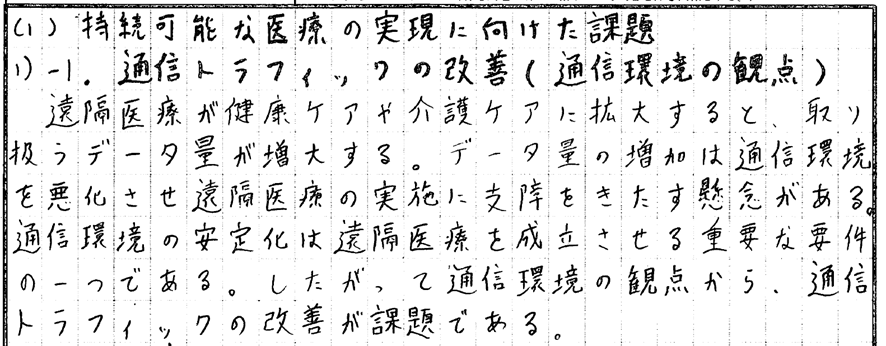 (1) 持続可能な医療の実現に向けた課題
1)-1. 通信トラフィックの改善(通信環境の観点)
遠隔医療が健康ケアや介護ケアに拡大すると、取り
扱うデータ量が増大する。データ量の増加は通信環境
を悪化させ遠隔医療の実施に支障をきたす懸念がある。
通信環境の安定化は遠隔医療を成立させる重要な要件
の一つである。したがって通信環境の観点から、通信
トラフィックの改善が課題である。